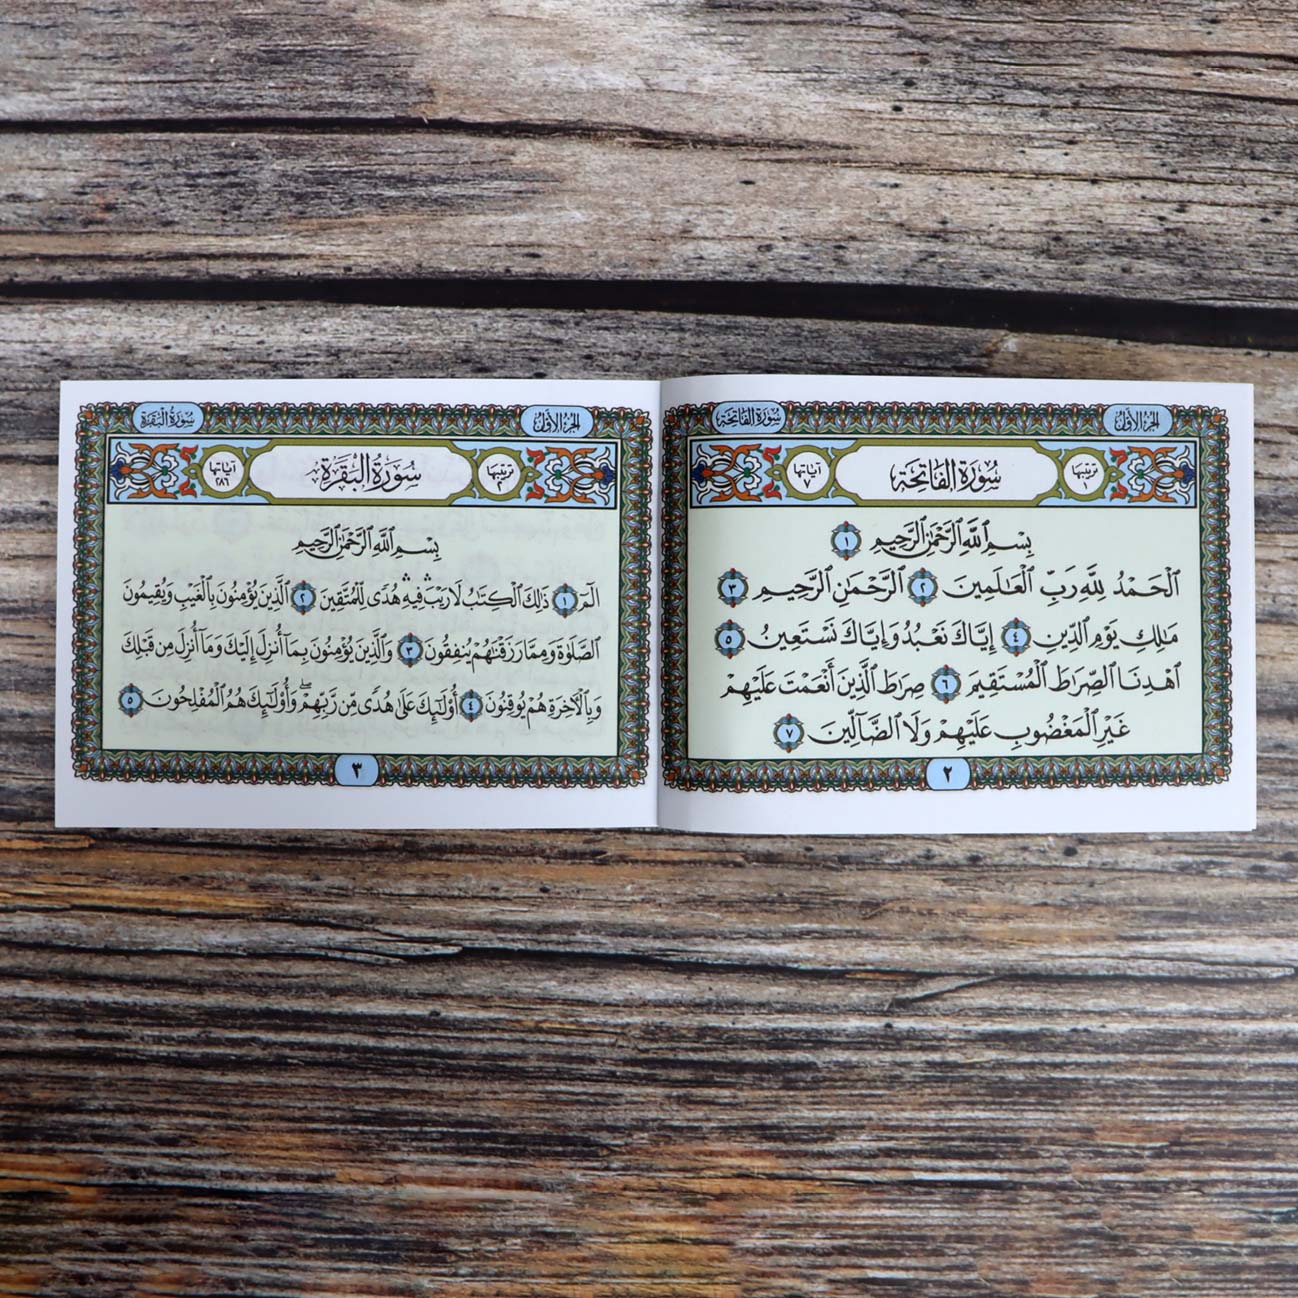 الجزء الأول
سورة الفاتحة
ترتيبها ١
سُورَةُ الْفَاتِحَةِ
آياتها ٧
بِسْمِ ٱللَّهِ ٱلرَّحْمَٰنِ ٱلرَّحِيمِ ١
ٱلْحَمْدُ لِلَّهِ رَبِّ ٱلْعَٰلَمِينَ ٢ ٱلرَّحْمَٰنِ ٱلرَّحِيمِ ٣
مَٰلِكِ يَوْمِ ٱلدِّينِ ٤ إِيَّاكَ نَعْبُدُ وَإِيَّاكَ نَسْتَعِينُ ٥
ٱهْدِنَا ٱلصِّرَٰطَ ٱلْمُسْتَقِيمَ ٦ صِرَٰطَ ٱلَّذِينَ أَنْعَمْتَ عَلَيْهِمْ
غَيْرِ ٱلْمَغْضُوبِ عَلَيْهِمْ وَلَا ٱلضَّآلِّينَ ٧
٢
الجزء الأول
سورة البقرة
ترتيبها ٢
سُورَةُ الْبَقَرَةِ
آياتها ٢٨٦
بِسْمِ ٱللَّهِ ٱلرَّحْمَٰنِ ٱلرَّحِيمِ
الٓمٓ ١ ذَٰلِكَ ٱلْكِتَٰبُ لَا رَيْبَ ۛ فِيهِ ۛ هُدًى لِّلْمُتَّقِينَ ٢ ٱلَّذِينَ يُؤْمِنُونَ بِٱلْغَيْبِ وَيُقِيمُونَ
ٱلصَّلَوٰةَ وَمِمَّا رَزَقْنَٰهُمْ يُنفِقُونَ ٣ وَٱلَّذِينَ يُؤْمِنُونَ بِمَآ أُنزِلَ إِلَيْكَ وَمَآ أُنزِلَ مِن قَبْلِكَ
وَبِٱلْءَاخِرَةِ هُمْ يُوقِنُونَ ٤ أُو۟لَٰٓئِكَ عَلَىٰ هُدًى مِّن رَّبِّهِمْ ۖ وَأُو۟لَٰٓئِكَ هُمُ ٱلْمُفْلِحُونَ ٥
٣